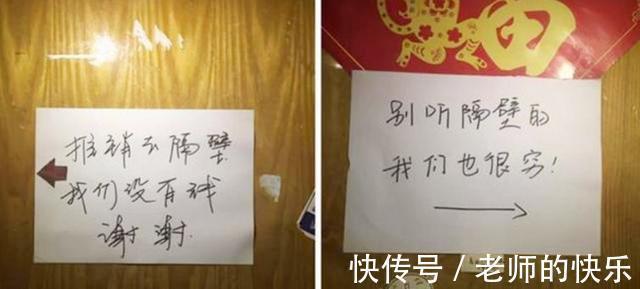 推销去隔壁
我们没有钱
谢谢
别听隔壁的
我们也很穷!
快传号 / 老师的快乐